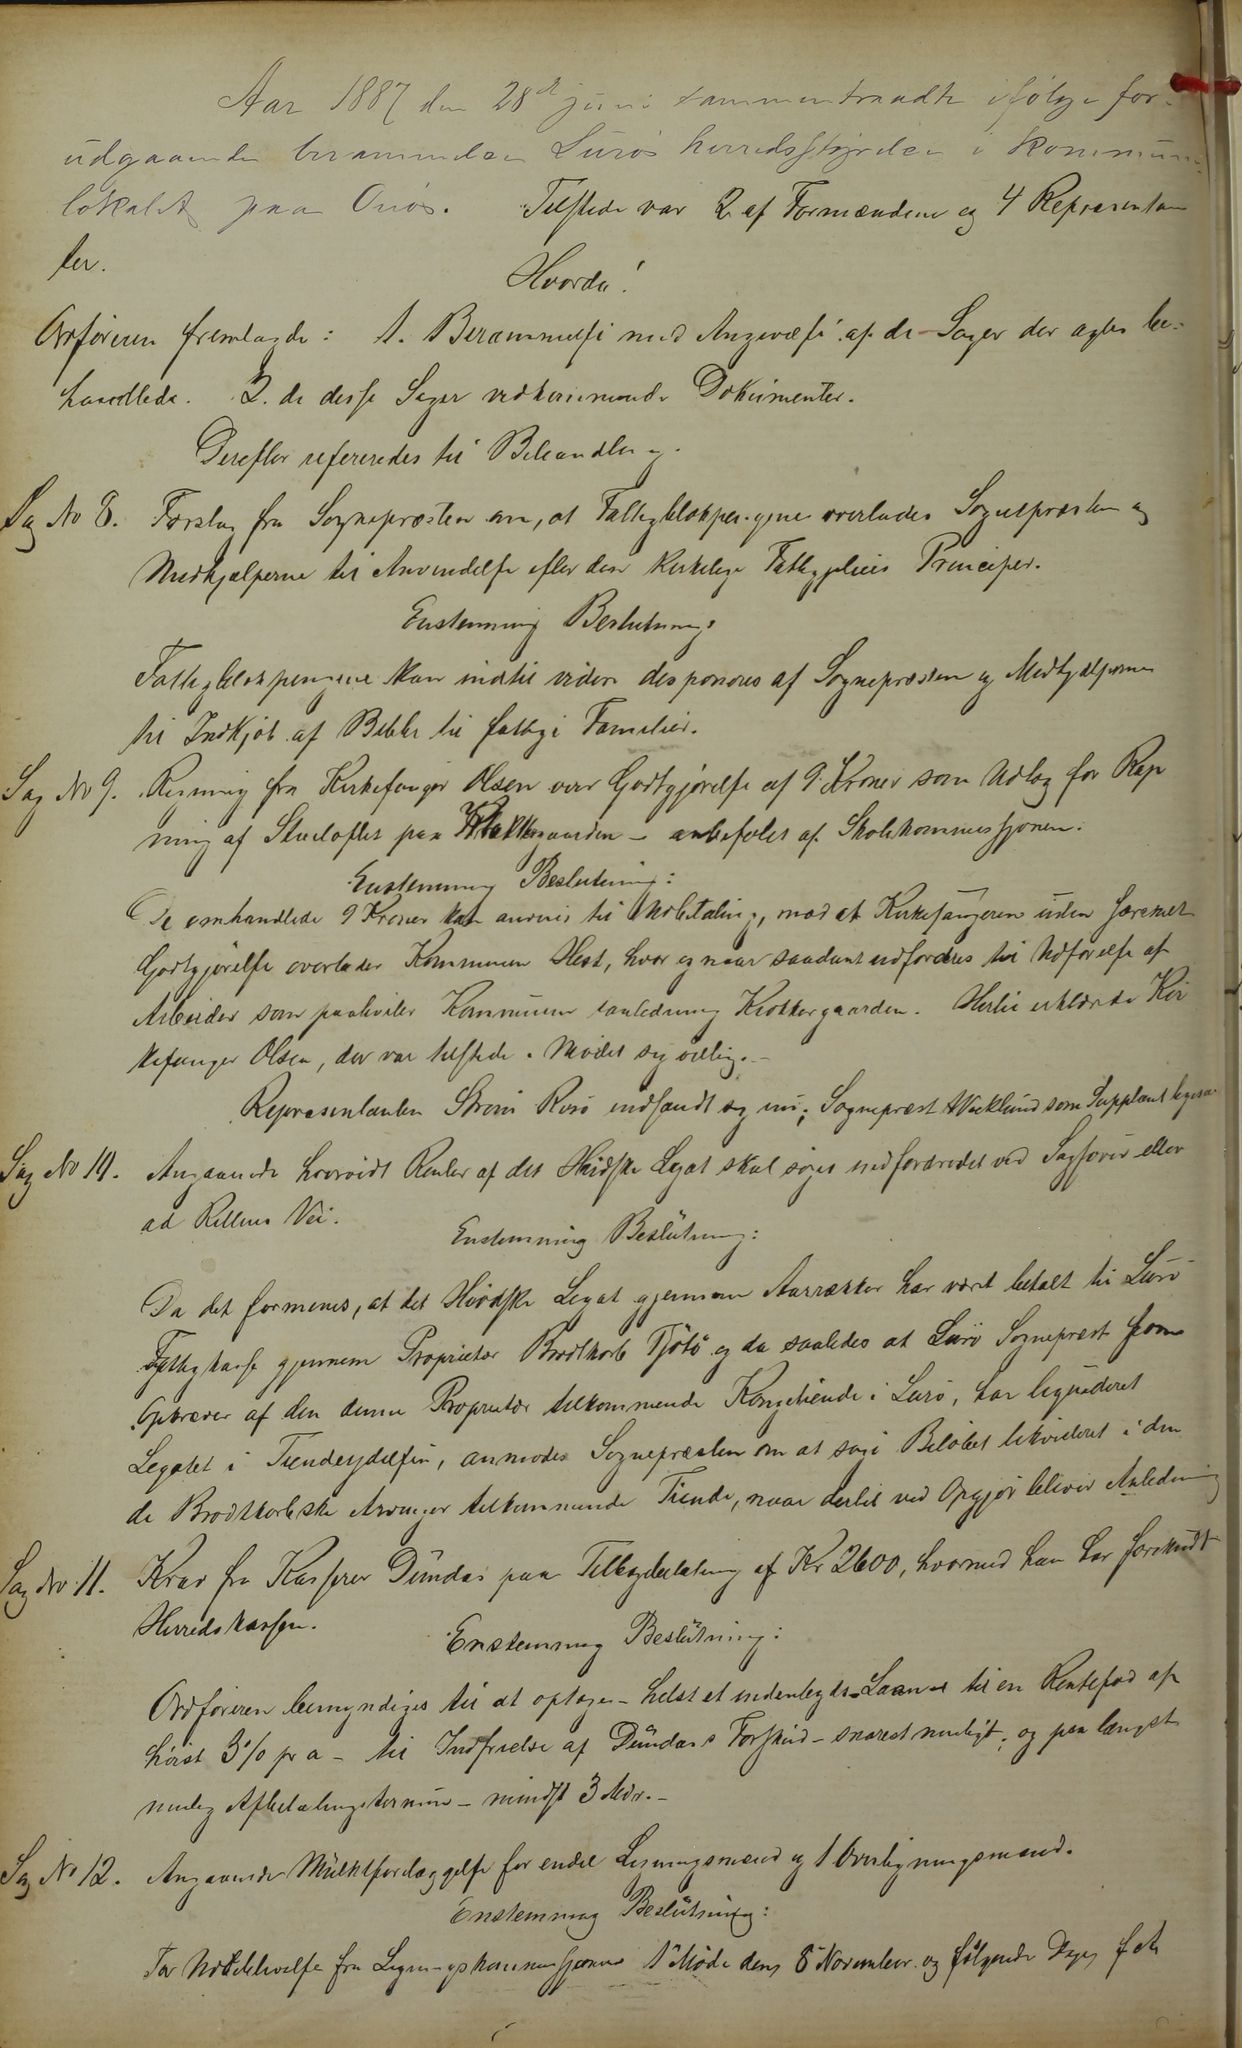 Aar 1887 den 28de juni sammentraadte ifølge for-
udgaaende berammelse Lurøs herredsstyrelse i kommune
lokalet paa Onøs. Tilstede var 2 af Formændene og 4 Repræsentan
ter.
Hvorda!
Orføreren fremlagde: 1. Berammelse med Angivelse af de Sager der agtes be-
handlede. 2. de desse Sager vedkommende Dokumenter.
Derefter refereredes til Behandling.
Sag No 8. Forslag fra Sognepræsten om, at Fattigblokpengene overlades Sognepræsten og
Medhjælperne til Anvendelse efter den kirkelige Fattigpleies Principer.
Enstemmig Beslutning:
Fattigblokpengene kan indtil videre disponeres af Sognepræsten og Medhjælperne
til Indkjøb af Bibler til fattige Familier.
Sag No 9. Regning fra Kirkesanger Olsen over Godtgjørelse af 9 Kroner som Udlæg for Rap
ning af Stueloftet paa Klokkergaarden - anbefalet af Skolekommissjonen.
Enstemmig Beslutning:
De omhandlede 9 Kroner kan anvises til Udbetaling, mod at Kirkesangeren uden særskilt
Godtgjørelse overlader Kommunen Hest, hvor og naar saadant udfordres til Udførelse af
Arbeider som paahviler Kommunen i anledning Klokkergaarden. Hertil erklærede Kir
kesanger Olsen, der var tilstede i Mødet sig villig. -
Repræsentanten Strøm Rusø indfandt sig nu; Sognepræst Wicklund som Supplant
Sag No 10. Angaaende hvorvidt Renter af det Heidske Legat skal søges indfordredet ved Sagfører eller
ad Rettens Vei.
Enstemmig Beslutning:
Da det formenes, at det Heidske Legat gjennem Aarrækker har været betalt til Lurø
Fattigkasse gjennem Proprietær Brodtkorb Tjøtø og da saaledes at Lurø Sognepræst som
Opkræver af den denne Proprietær tilkommende Kongetiende i Lurø, har liqvideret
Legatet i Tiendeydelsen, anmodes Sognepræsten om at søge Beløbet likvideret i den
de Brodtkorbske Arvinger tilkommende Tiende, naar dertil ved Opgjør bliver Anledning
Sag No 11. Krav fra Kasserer Dundas paa Tilbagebetaling af Kr 2600, hvormed han har forskudt
Herredskassen.
Enstemmig Beslutning:
Ordføreren bemyndiges til at optage - helst et indenbygds Laan - til en Rentefod af
høist 3% pr a - til Indfrielse af Dundas's Forskud - snarest muligt; og paa længst
mulig Afbetalingstermin - mindst 3 Mdr. -
Sag No 12. Angaaende Mulktforlæggelse for endel Ligningsmænd og 1 Overligningsmand.
Enstemmig Beslutning:
For Udeblivelse fra Ligningskommissionens 1ste Møde den 8 November og følgende Dage